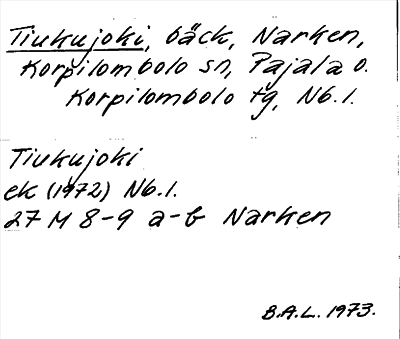 Tiukujoki, bäck, Narken,
Korpilombolo sn, Pajala o.
Korpilombolo tg, Nb.l.
Tiukujoki
ek (1972) Nb.l.
27 M 8-9 a-b Narken
B.A.L. 1973.